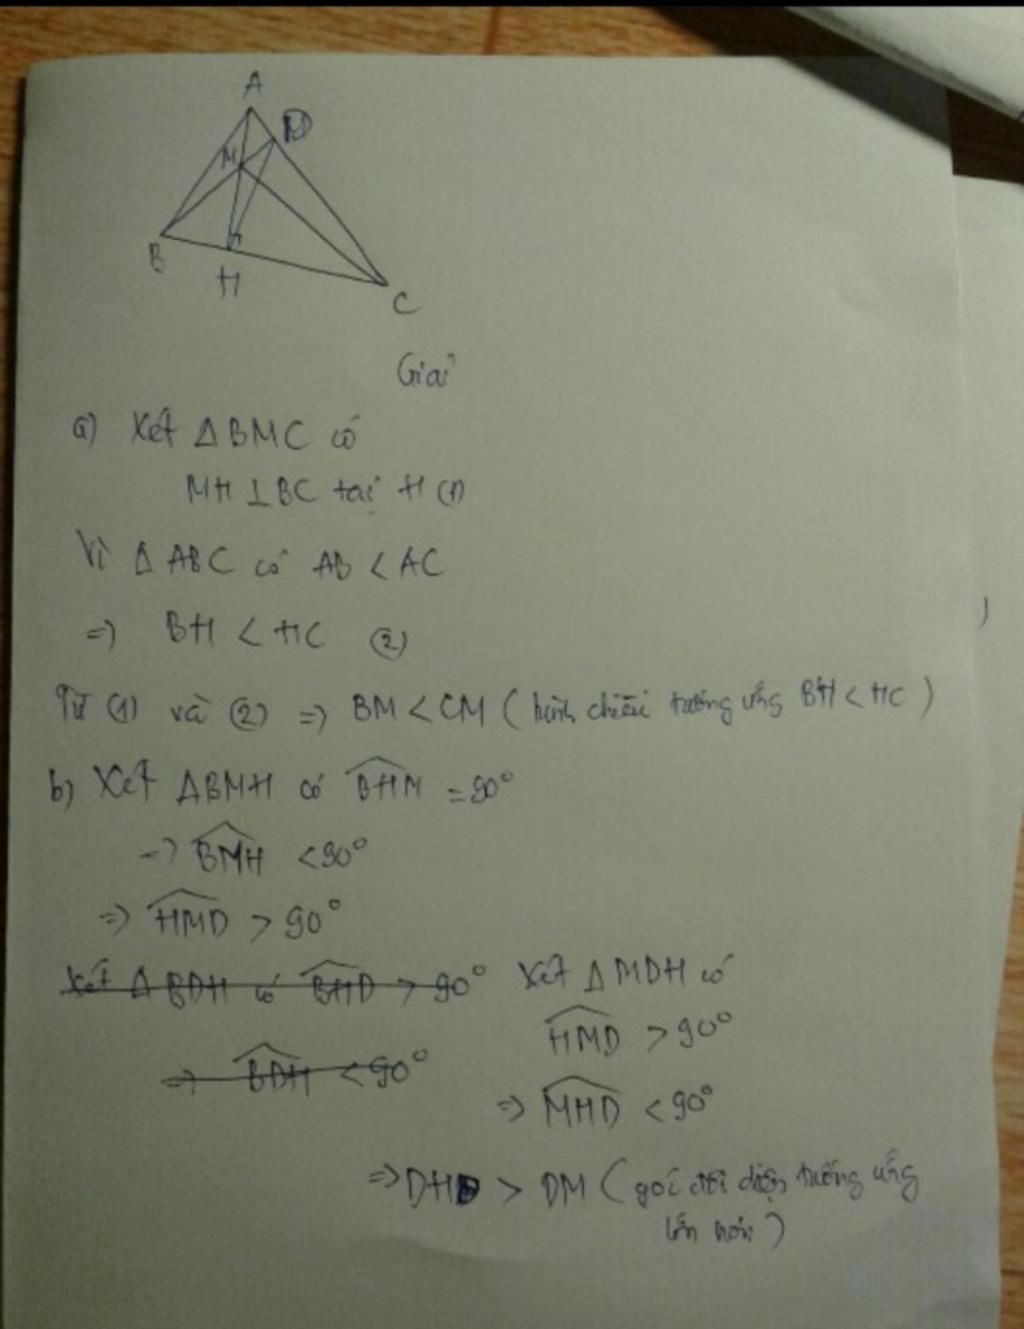 A
D
M
B
H
C
Giải
a) Xét ∆BMC có
MH ⊥ BC tại H (1)
Vì ∆ABC có AB < AC
=> BH < HC (2)
Từ (1) và (2) => BM < CM (hình chiếu tương ứng BH < HC)
b) Xét ∆BMH có \widehat{BHM} = 90°
=> \widehat{BMH} < 90°
=> \widehat{HMD} > 90°
Xét ∆BDH có \widehat{BHD} > 90°
=> \widehat{BDH} < 90°
Xét ∆MDH có
\widehat{HMD} > 90°
=> \widehat{MHD} < 90°
=> DH > DM (góc đối diện tương ứng
lớn hơn)